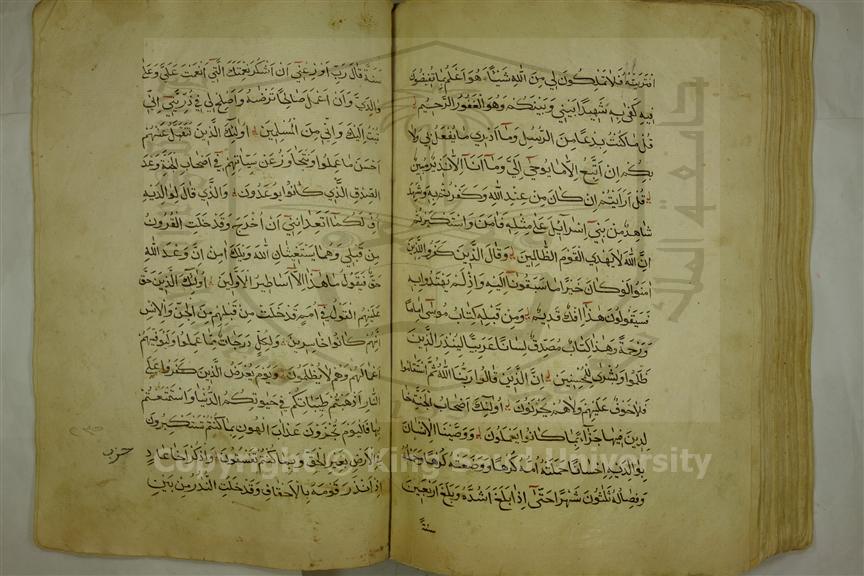 افتريته فلا تملكون لي من الله شيئا هو اعلم بما تفيضون
فيه كفى به شهيدا بيني وبينكم وهو الغفور الرحيم
قل ما كنت بدعا من الرسل وما ادري ما يفعل بي ولا
بكم ان اتبع الا ما يوحى الي وما انا الا نذير مبين
قل ارايتم ان كان من عند الله وكفرتم به وشهد
شاهد من بني اسرائل على مثله فامن واستكبرتم
ان الله لا يهدي القوم الظالمين وقال الذين كفروا للذين
امنوا لو كان خيرا ما سبقونا اليه واذ لم يهتدوا به
فسيقولون هذا افك قديم ومن قبله كتاب موسى اماما
ورحمة وهذا كتاب مصدق لسانا عربيا لينذر الذين
ظلموا وبشرى للمحسنين ان الذين قالوا ربنا الله ثم استقاموا
فلا خوف عليهم ولا هم يحزنون اولئك اصحاب الجنة خا
لدين فيها جزاء بما كانوا يعملون ووصينا الانسان
بوالديه احسانا حملته امه كرها ووضعته كرها وحمله
وفصاله ثلثون شهرا حتى اذا بلغ اشده وبلغ اربعين
سنة
سنة قال رب اوزعني ان اشكر نعمتك التي انعمت علي وعلى
والدي وان اعمل صالحا ترضيه واصلح لي في ذريتي اني
تبت اليك واني من المسلمين اولئك الذين نتقبل عنهم
احسن ما عملوا ونتجاوز عن سياتهم في اصحاب الجنة وعد
الصدق الذي كانوا يوعدون والذي قال لوالديه
اف لكما اتعدانني ان اخرج وقد خلت القرون
من قبلي وهما يستغيثان الله ويلك امن ان وعد الله
حق فيقول ما هذا الا اساطير الاولين اولئك الذين حق
عليهم القول في امم قد خلت من قبلهم من الجن والانس
انهم كانوا خاسرين ولكل درجات مما عملوا وليوفيهم
اعمالهم وهم لا يظلمون ويوم يعرض الذين كفروا على
النار اذهبتم طيباتكم في حيوتكم الدنيا واستمتعتم
بها فاليوم تجزون عذاب الهون بما كنتم تستكبرون
في الارض بغير الحق وبما كنتم تفسقون واذكر اخا عاد
اذ انذر قومه بالاحقاف وقد خلت النذر من بين
حزب
جامعة الملك
Copyright © King Saud University